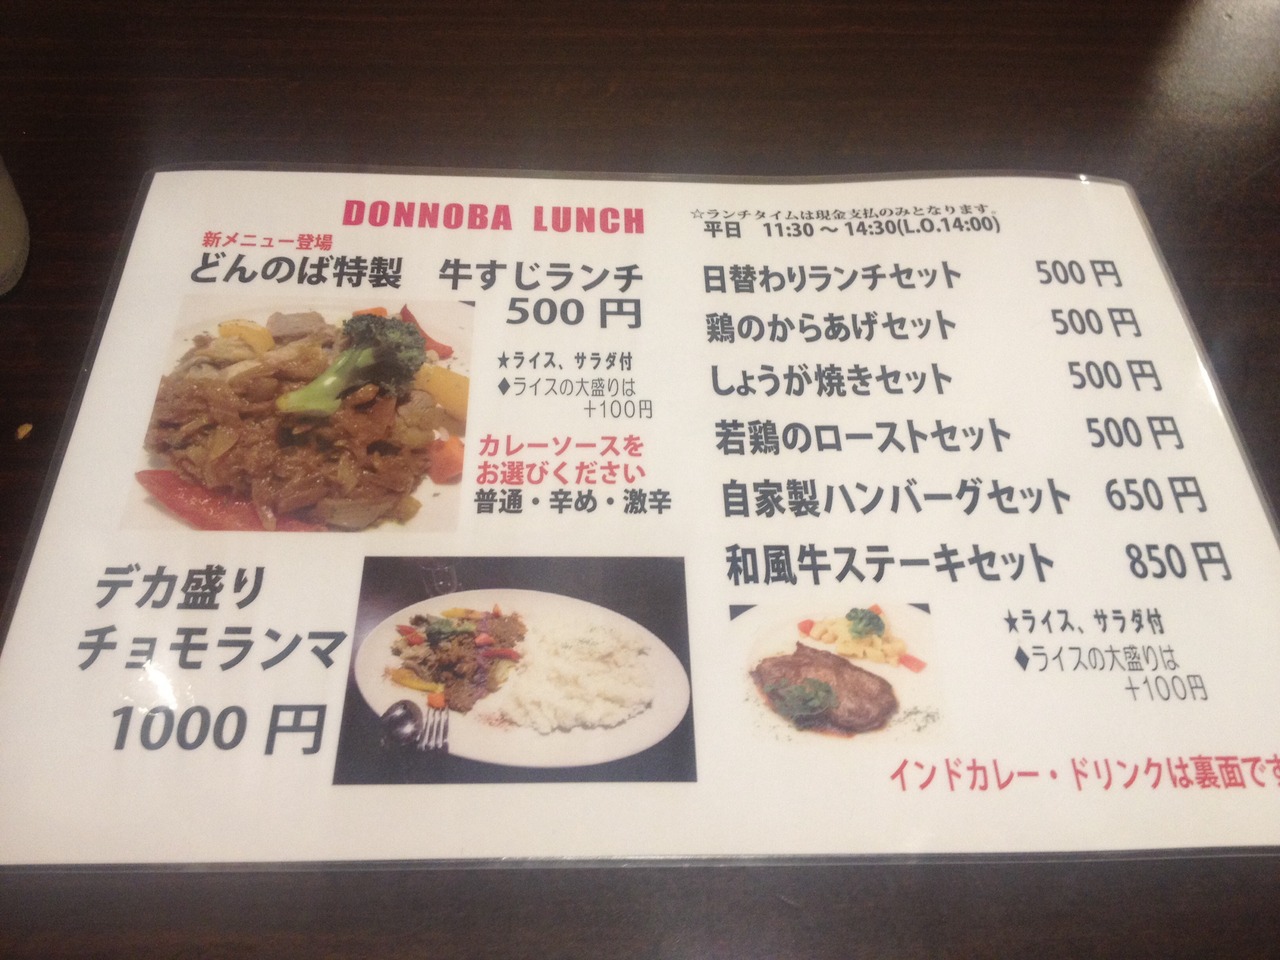 DONNOBA LUNCH
新メニュー登場
どんのば特製 牛すじランチ
500 円
★ライス、サラダ付
♦ライスの大盛りは
+100円
カレーソースを
お選びください
普通・辛め・激辛
デカ盛り
チョモランマ
1000 円
☆ランチタイムは現金支払のみとなります。
平日 11:30 ～ 14:30(L.O.14:00)
日替わりランチセット 500 円
鶏のからあげセット 500 円
しょうが焼きセット 500 円
若鶏のローストセット 500 円
自家製ハンバーグセット 650 円
和風牛ステーキセット 850 円
★ライス、サラダ付
♦ライスの大盛りは
+100円
インドカレー・ドリンクは裏面です